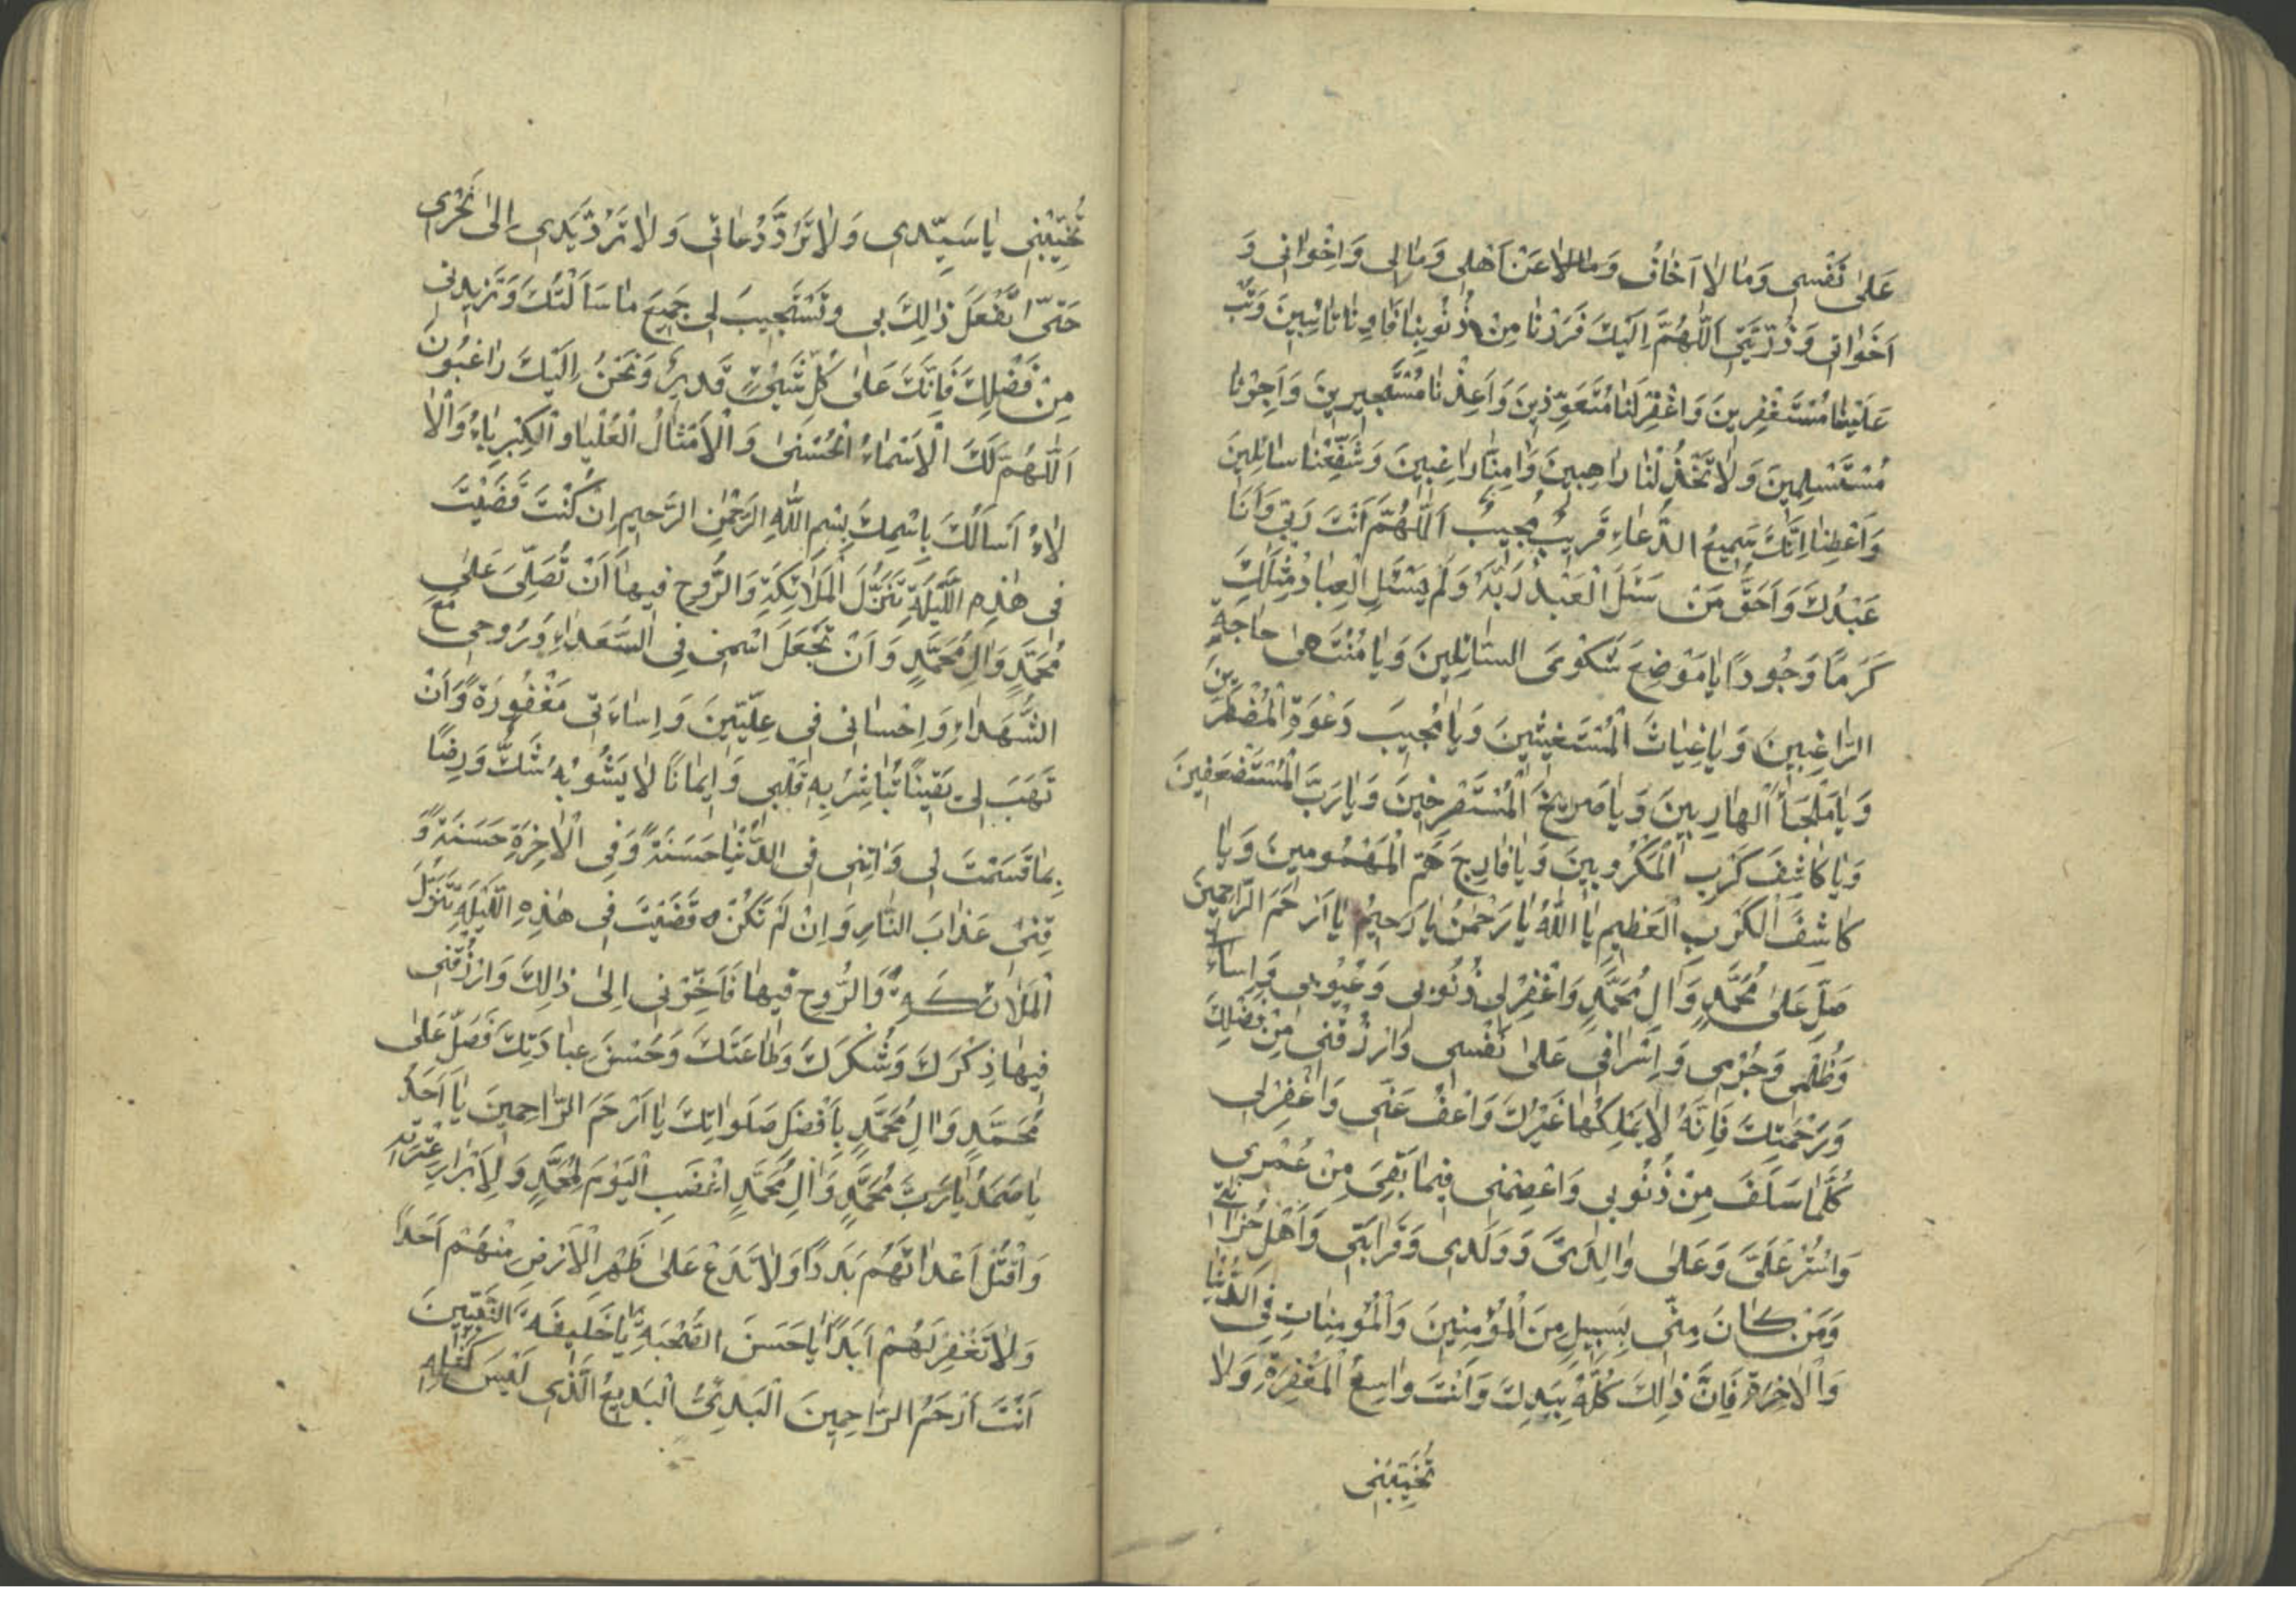 عَلىٰ نَفْسي وَمٰا لاٰ اَخٰافُ وَمٰالاٰ عَنْ اَهْلي وَمٰالي وَاِخْوٰاني وَ
اَخَوٰاتي وَذُرِّيَّتي اَللّٰهُمَّ اِلَيْكَ فَرَرْنٰا مِنْ ذُنُوبِنٰا فَاٰوِنٰا تٰائِبينَ وَتُبْ
عَلَيْنٰا مُسْتَغْفِرينَ وَاغْفِرْلَنٰا مُتَعَوِّذينَ وَاَعِذْنٰا مُسْتَجيرينَ وَاَجِرْنٰا
مُسْتَسْلِمينَ وَلاٰ تَخْذُلْنٰا رٰاهِبينَ وَاٰمِنّٰا رٰاغِبينَ وَشَفِّعْنٰا سٰائِلينَ
وَاَعْطِنٰا اِنَّكَ سَميعُ الدُّعٰاءِ قَريبٌ مُجيبٌ اَللّٰهُمَّ اَنْتَ رَبّي وَاَنَا
عَبْدُكَ وَاَحَقُّ مَنْ سَئَلَ الْعَبْدُ رَبَّهُ وَلَمْ يَسْئَلِ الْعِبٰادُ مِثْلَكَ
كَرَمًا وَجُودًا يٰا مَوْضِعَ شَكْوَى السّٰائِلينَ وَيٰا مُنْتَهىٰ حٰاجَةِ
الرّٰاغِبينَ وَيٰا غِيٰاثَ الْمُسْتَغيثينَ وَيٰا مُجيبَ دَعْوَةِ الْمُضْطَرّينَ
وَيٰا مَلْجَأَ الْهٰارِبينَ وَيٰا صَريخَ الْمُسْتَصْرِخينَ وَيٰا رَبَّ الْمُسْتَضْعَفينَ
وَيٰا كٰاشِفَ كَرْبِ الْمَكْرُوبينَ وَيٰا فٰارِجَ هَمِّ الْمَهْمُومينَ وَيٰا
كٰاشِفَ الْكَرْبِ الْعَظيمِ يٰا اَللّٰهُ يٰا رَحْمٰنُ يٰا رَحيمُ يٰا اَرْحَمَ الرّٰاحِمينَ
صَلِّ عَلىٰ مُحَمَّدٍ وَاٰلِ مُحَمَّدٍ وَاغْفِرْلي ذُنُوبي وَعُيُوبي وَاِسٰاءَتي
وَظُلْمي وَجُرْمي وَاِسْرٰافي عَلىٰ نَفْسي وَارْزُقْني مِنْ فَضْلِكَ
وَرَحْمَتِكَ فَاِنَّهُ لاٰ يَمْلِكُهٰا غَيْرُكَ وَاعْفُ عَنّي وَاغْفِرْلي
كُلَّمٰا سَلَفَ مِنْ ذُنُوبي وَاعْصِمْني فيمٰا بَقِيَ مِنْ عُمْري
وَاسْتُرْ عَلَيَّ وَعَلىٰ وٰالِدَيَّ وَوَلَدي وَقَرٰابَتي وَاَهْلِ حُزٰانَتي
وَمَنْ كٰانَ مِنّي بِسَبيلٍ مِنَ الْمُؤْمِنينَ وَالْمُؤْمِنٰاتِ فِي الدُّنْيٰا
وَالْاٰخِرَةِ فَاِنَّ ذٰلِكَ كُلَّهُ بِيَدِكَ وَاَنْتَ وٰاسِعُ الْمَغْفِرَةِ وَلاٰ
تُخَيِّبْني
تُخَيِّبْني يٰا سَيِّدي وَلاٰ تَرُدَّ دُعٰائي وَلاٰ تَرُدَّ يَدي اِلىٰ نَحْري
حَتّىٰ تَفْعَلَ ذٰلِكَ بي وَتَسْتَجيبَ لي جَميعَ مٰا سَاَلْتُكَ وَتَزيدَني
مِنْ فَضْلِكَ فَاِنَّكَ عَلىٰ كُلِّ شَيْءٍ قَديرٌ وَنَحْنُ اِلَيْكَ رٰاغِبُونَ
اَللّٰهُمَّ لَكَ الْاَسْمٰاءُ الْحُسْنىٰ وَالْاَمْثٰالُ الْعُلْيٰا وَالْكِبْرِيٰاءُ وَالْاٰ
لاٰءُ اَسْاَلُكَ بِاسْمِكَ بِسْمِ اللّٰهِ الرَّحْمٰنِ الرَّحيمِ اِنْ كُنْتَ قَضَيْتَ
في هٰذِهِ اللَّيْلَةِ تَنَزُّلَ الْمَلاٰئِكَةِ وَالرُّوحِ فيهٰا اَنْ تُصَلِّيَ عَلىٰ
مُحَمَّدٍ وَاٰلِ مُحَمَّدٍ وَاَنْ تَجْعَلَ اسْمي فِي السُّعَدٰاءِ وَرُوحي مَعَ
الشُّهَدٰاءِ وَاِحْسٰاني في عِلِّيّينَ وَاِسٰاءَتي مَغْفُورَةً وَاَنْ
تَهَبَ لي يَقينًا تُبٰاشِرُ بِهِ قَلْبي وَايمٰانًا لاٰ يَشُوبُهُ شَكٌّ وَرِضًا
بِمٰا قَسَمْتَ لي وَاٰتِني فِي الدُّنْيٰا حَسَنَةً وَفِي الْاٰخِرَةِ حَسَنَةً وَ
قِني عَذٰابَ النّٰارِ وَاِنْ لَمْ تَكُنْ قَضَيْتَ في هٰذِهِ اللَّيْلَةِ تَنَزُّلَ
الْمَلاٰئِكَةِ وَالرُّوحِ فيهٰا فَاَخِّرْني اِلىٰ ذٰلِكَ وَارْزُقْني
فيهٰا ذِكْرَكَ وَشُكْرَكَ وَطٰاعَتَكَ وَحُسْنَ عِبٰادَتِكَ فَصَلِّ عَلىٰ
مُحَمَّدٍ وَاٰلِ مُحَمَّدٍ بِاَفْضَلِ صَلَوٰاتِكَ يٰا اَرْحَمَ الرّٰاحِمينَ يٰا اَحَدُ
يٰا صَمَدُ يٰا رَبَّ مُحَمَّدٍ وَاٰلِ مُحَمَّدٍ اغْضَبِ الْيَوْمَ لِمُحَمَّدٍ وَلِاَبْرٰارِ عِتْرَتِهِ
وَاقْتُلْ اَعْدٰائَهُمْ بَدَدًا وَلاٰ تَدَعْ عَلىٰ ظَهْرِ الْاَرْضِ مِنْهُمْ اَحَدًا
وَلاٰ تَغْفِرْ لَهُمْ اَبَدًا يٰا حَسَنَ الصُّحْبَةِ يٰا خَليفَةَ النَّبِيّينَ
اَنْتَ اَرْحَمُ الرّٰاحِمينَ الْبَدِيُّ الْبَديعُ الَّذي لَيْسَ كَمِثْلِهِ